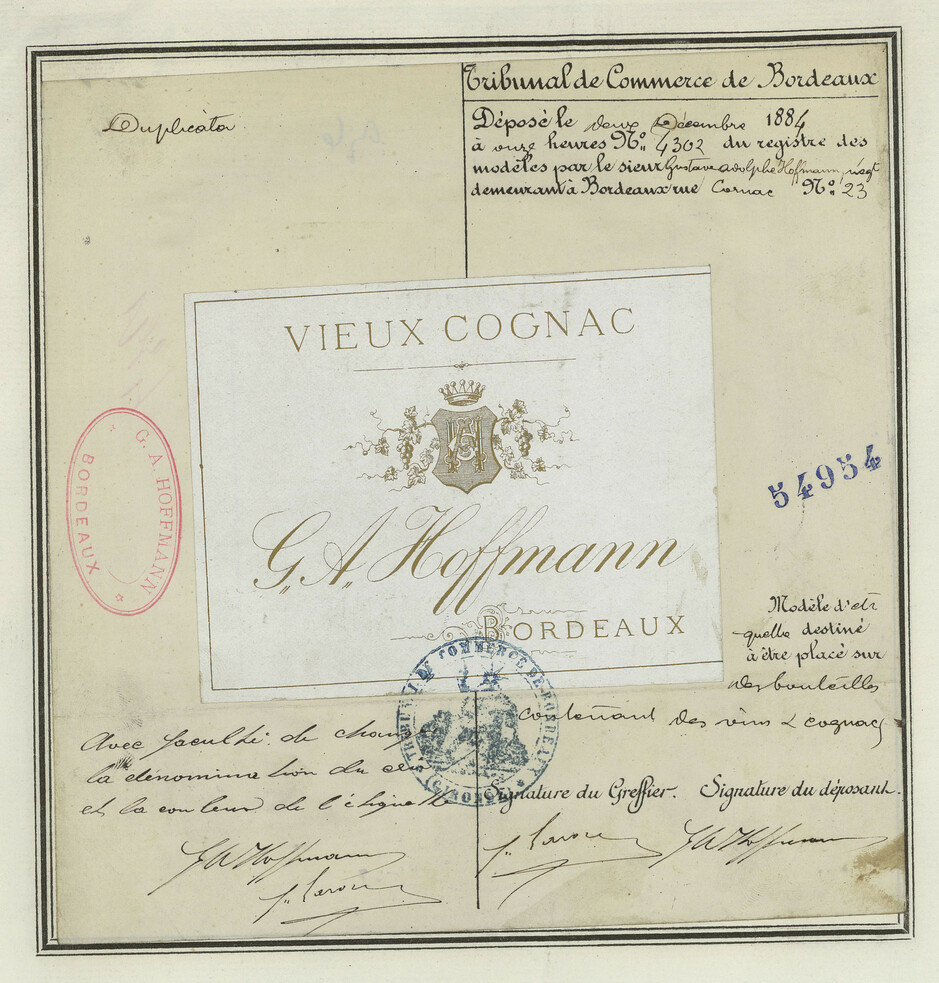 Duplicata
Tribunal de Commerce de Bordeaux
Déposé le deux Décembre 1884
à onze heures No. 4302 du registre des
modèles par le sieur Gustave Adolphe Hoffmann, négt
demeurant à Bordeaux rue Cornac No. 23
VIEUX COGNAC
AH
G. A. Hoffmann
BORDEAUX
G. A. HOFFMANN
BORDEAUX
54954
Modèle d'eti
quette destiné
à être placé sur
des bouteilles
contenant des vins & cognacs
TRIBUNAL DE COMMERCE DE BORDEAUX
(GIRONDE)
Avec faculté de changer
la dénomination du cru
et la couleur de l'étiquette
Signature du Greffier. Signature du déposant.
GAHoffmann
GAHoffmann